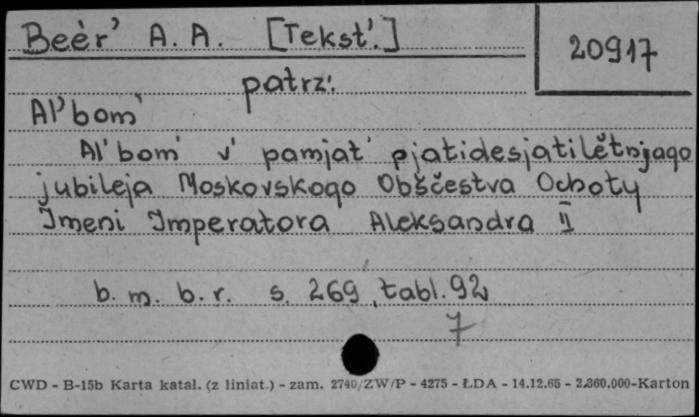 Beèr' A. A. [Tekst'.]
20917
patrz:
Al'bom'
Al'bom' v' pamjat' pjatidesjatilětnjago
jubileja Moskovskogo Obščestva Ochoty
Imeni Imperatora Aleksandra II
b. m. b. r. s. 269, tabl. 92
7
CWD - B-15b Karta katal. (z liniat.) - zam. 2740/ZW/P - 4275 - ŁDA - 14.12.65 - 2.360.000-Karton